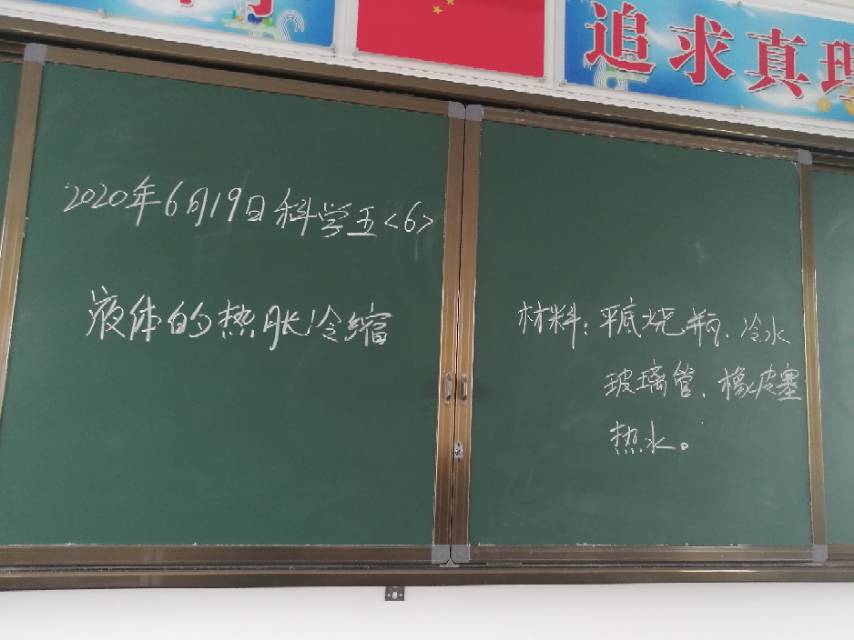 追求真理
2020年6月19日科学五<6>
液体的热胀冷缩
材料：平底烧瓶、冷水
玻璃管、橡皮塞
热水。